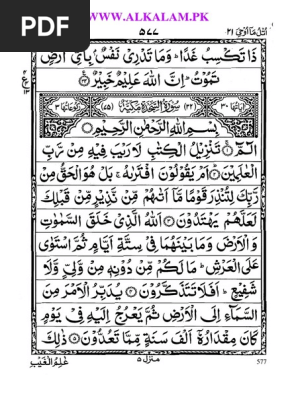 PDF
www.ALKALAM.PK
اتل ما اوحی ۲۱
۵۷۷
ذَا تَكْسِبُ غَدًا ؕ وَمَا تَدْرِیْ نَفْسٌۢ بِاَیِّ اَرْضٍ
تَمُوْتُ ؕ اِنَّ اللّٰهَ عَلِیْمٌ خَبِیْرٌ ۟
اٰیاتها ۳۰ (۳۲) سُوْرَةُ السَّجْدَةِ مَكِّیَّةٌ (۷۵) رکوعاتها ۳
بِسْمِ اللّٰهِ الرَّحْمٰنِ الرَّحِیْمِ
الٓمّٓ ۟ تَنْزِیْلُ الْكِتٰبِ لَا رَیْبَ فِیْهِ مِنْ رَّبِّ
الْعٰلَمِیْنَ ۟ اَمْ یَقُوْلُوْنَ افْتَرٰىهُ ۚ بَلْ هُوَ الْحَقُّ مِنْ
رَّبِّكَ لِتُنْذِرَ قَوْمًا مَّاۤ اَتٰىهُمْ مِّنْ نَّذِیْرٍ مِّنْ قَبْلِكَ
لَعَلَّهُمْ یَهْتَدُوْنَ ۟ اَللّٰهُ الَّذِیْ خَلَقَ السَّمٰوٰتِ
وَالْاَرْضَ وَمَا بَیْنَهُمَا فِیْ سِتَّةِ اَیَّامٍ ثُمَّ اسْتَوٰی
عَلَی الْعَرْشِ ؕ مَا لَكُمْ مِّنْ دُوْنِهٖ مِنْ وَّلِیٍّ وَّلَا
شَفِیْعٍ ؕ اَفَلَا تَتَذَكَّرُوْنَ ۟ یُدَبِّرُ الْاَمْرَ مِنَ
السَّمَآءِ اِلَی الْاَرْضِ ثُمَّ یَعْرُجُ اِلَیْهِ فِیْ یَوْمٍ
كَانَ مِقْدَارُهٗۤ اَلْفَ سَنَةٍ مِّمَّا تَعُدُّوْنَ ۟ ذٰلِكَ
منزل ۵
عٰلِمُ الْغَیْبِ
577